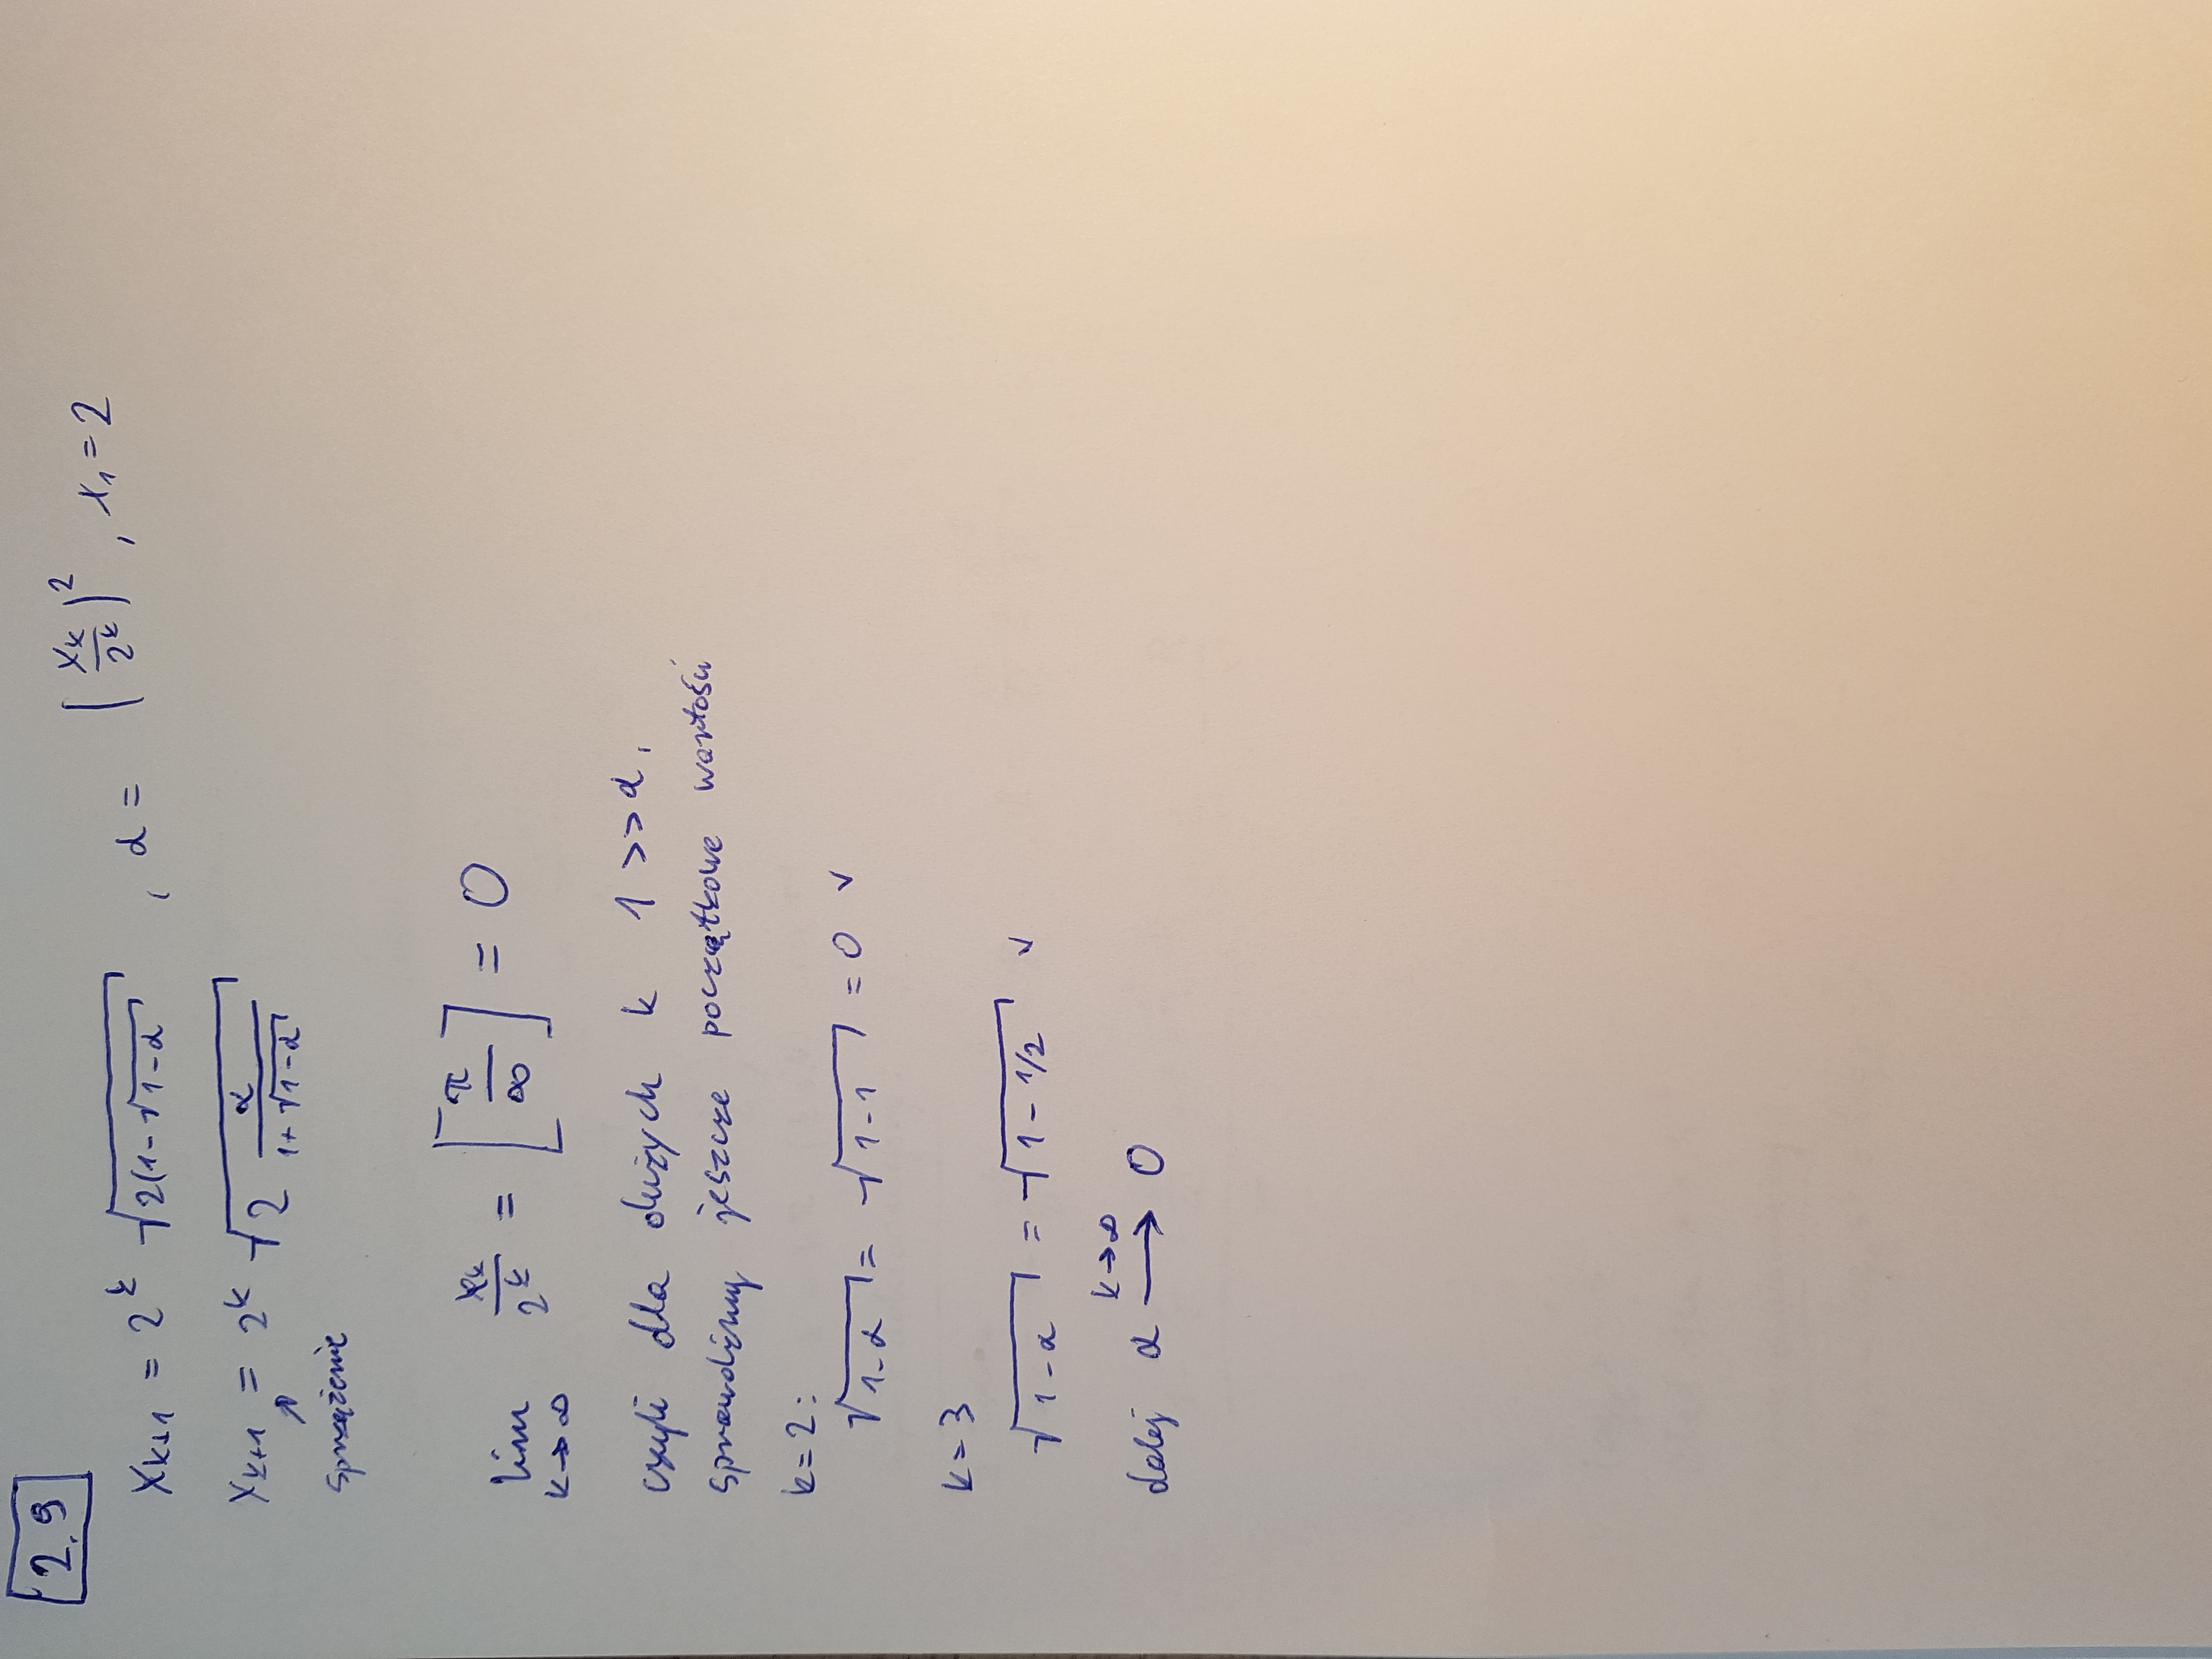 2.9
x_{k+1} = 2^k √(2(1-√(1-α) , α = (x_k/2^k)^2 , x_1 = 2
x_{k+1} = 2^k √(2 α/(1+√(1-α)))
↗
sprzężenie
lim_{k→∞} x_k/2^k = [π/∞] = 0
czyli dla dużych k 1 >> α,
sprawdźmy jeszcze początkowe wartości
k=2:
√(1-α) = √(1-1) = 0 ✓
k=3
√(1-α) = √(1-1/2) ✓
dalej α \xrightarrow{k→∞} 0